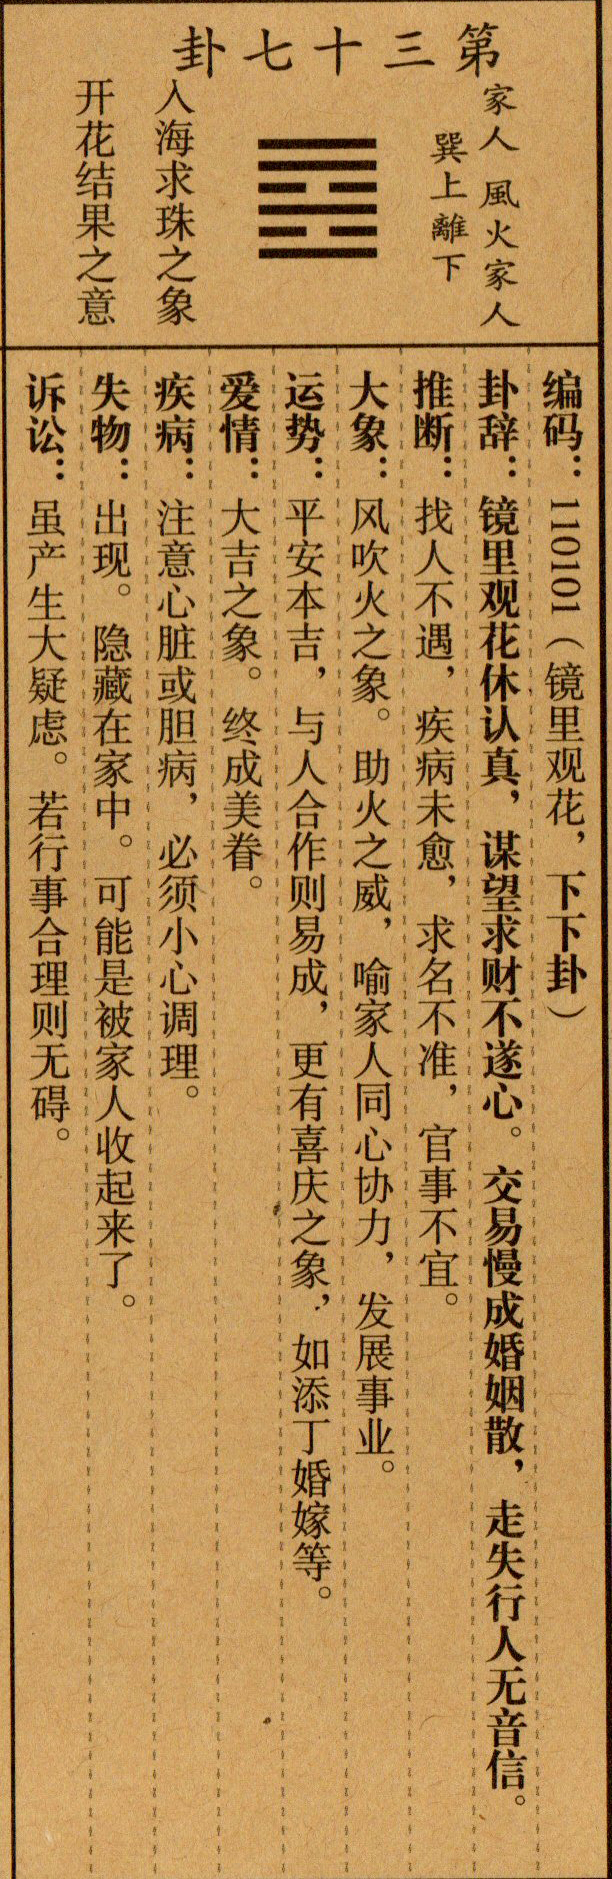 第三十七卦
家人 風火家人
巽上離下
入海求珠之象
开花结果之意
编码：110101（镜里观花，下下卦）
卦辞：镜里观花休认真，谋望求财不遂心。交易慢成婚姻散，走失行人无音信。
推断：找人不遇，疾病未愈，求名不准，官事不宜。
大象：风吹火之象。助火之威，喻家人同心协力，发展事业。
运势：平安本吉，与人合作则易成，更有喜庆之象，如添丁婚嫁等。
爱情：大吉之象。终成美眷。
疾病：注意心脏或胆病，必须小心调理。
失物：出现。隐藏在家中。可能是被家人收起来了。
诉讼：虽产生大疑虑。若行事合理则无碍。